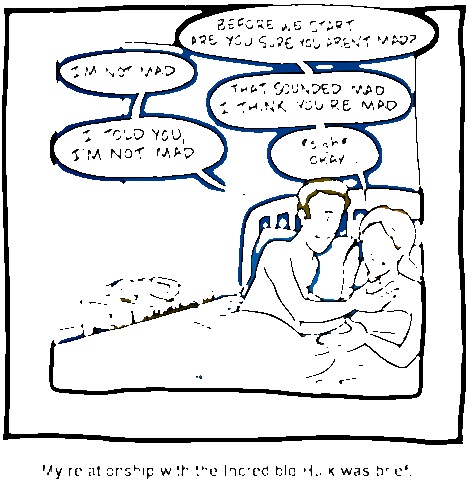 BEFORE WE START,
ARE YOU SURE YOU AREN'T MAD?
I'M NOT MAD
THAT SOUNDED MAD
I THINK YOU'RE MAD
I TOLD YOU,
I'M NOT MAD
*sigh*
OKAY
My relationship with the Incredible Hulk was brief.